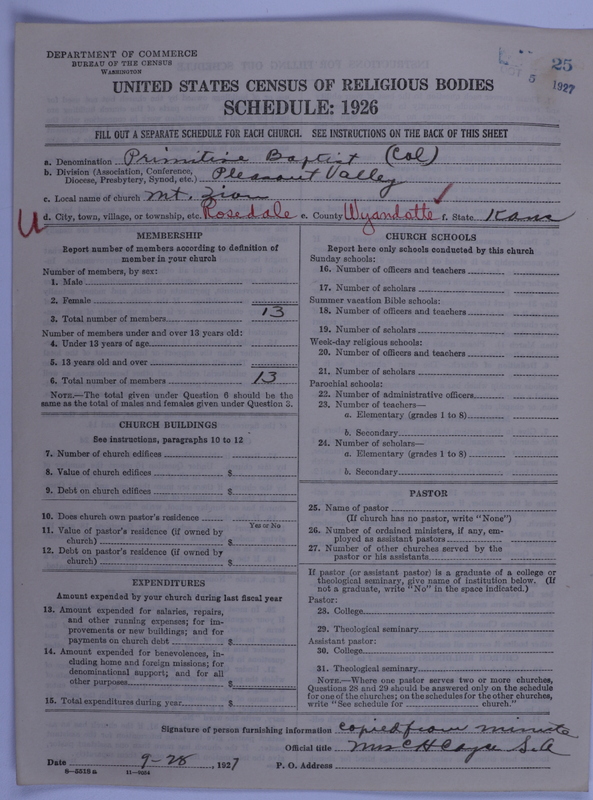 DEPARTMENT OF COMMERCE
BUREAU OF THE CENSUS
WASHINGTON
25
5 1927
UNITED STATES CENSUS OF RELIGIOUS BODIES
SCHEDULE: 1926
FILL OUT A SEPARATE SCHEDULE FOR EACH CHURCH. SEE INSTRUCTIONS ON THE BACK OF THIS SHEET
a. Denomination Primitive Baptist (Col)
b. Division (Association, Conference, Diocese, Presbytery, Synod, etc.) Pleasant Valley
c. Local name of church Mt. Zion
d. City, town, village, or township, etc. Rosedale e. County Wyandotte f. State Kans
MEMBERSHIP
Report number of members according to definition of
member in your church
Number of members, by sex:
1. Male
2. Female
3. Total number of members 13
Number of members under and over 13 years old:
4. Under 13 years of age
5. 13 years old and over
6. Total number of members 13
NOTE.—The total given under Question 6 should be the
same as the total of males and females given under Question 3.
CHURCH BUILDINGS
See instructions, paragraphs 10 to 12
7. Number of church edifices
8. Value of church edifices $
9. Debt on church edifices $
10. Does church own pastor's residence
Yes or No
11. Value of pastor's residence (if owned by
church) $
12. Debt on pastor's residence (if owned by
church) $
EXPENDITURES
Amount expended by your church during last fiscal year
13. Amount expended for salaries, repairs,
and other running expenses; for im-
provements or new buildings; and for
payments on church debt $
14. Amount expended for benevolences, in-
cluding home and foreign missions; for
denominational support; and for all
other purposes $
15. Total expenditures during year $
CHURCH SCHOOLS
Report here only schools conducted by this church
Sunday schools:
16. Number of officers and teachers
17. Number of scholars
Summer vacation Bible schools:
18. Number of officers and teachers
19. Number of scholars
Week-day religious schools:
20. Number of officers and teachers
21. Number of scholars
Parochial schools:
22. Number of administrative officers
23. Number of teachers—
a. Elementary (grades 1 to 8)
b. Secondary
24. Number of scholars—
a. Elementary (grades 1 to 8)
b. Secondary
PASTOR
25. Name of pastor
(If church has no pastor, write "None")
26. Number of ordained ministers, if any, em-
ployed as assistant pastors
27. Number of other churches served by the
pastor or his assistants
If pastor (or assistant pastor) is a graduate of a college or
theological seminary, give name of institution below. (If
not a graduate, write "No" in the space indicated.)
Pastor:
28. College
29. Theological seminary
Assistant pastor:
30. College
31. Theological seminary
NOTE.—Where one pastor serves two or more churches,
Questions 28 and 29 should be answered only on the schedule
for one of the churches; on the schedules for the other churches,
write "See schedule for church."
Signature of person furnishing information copied from minute
Official title Mrs C H Cayce S.A
Date 9-28, 1927 P. O. Address
8-5518a 11-9054